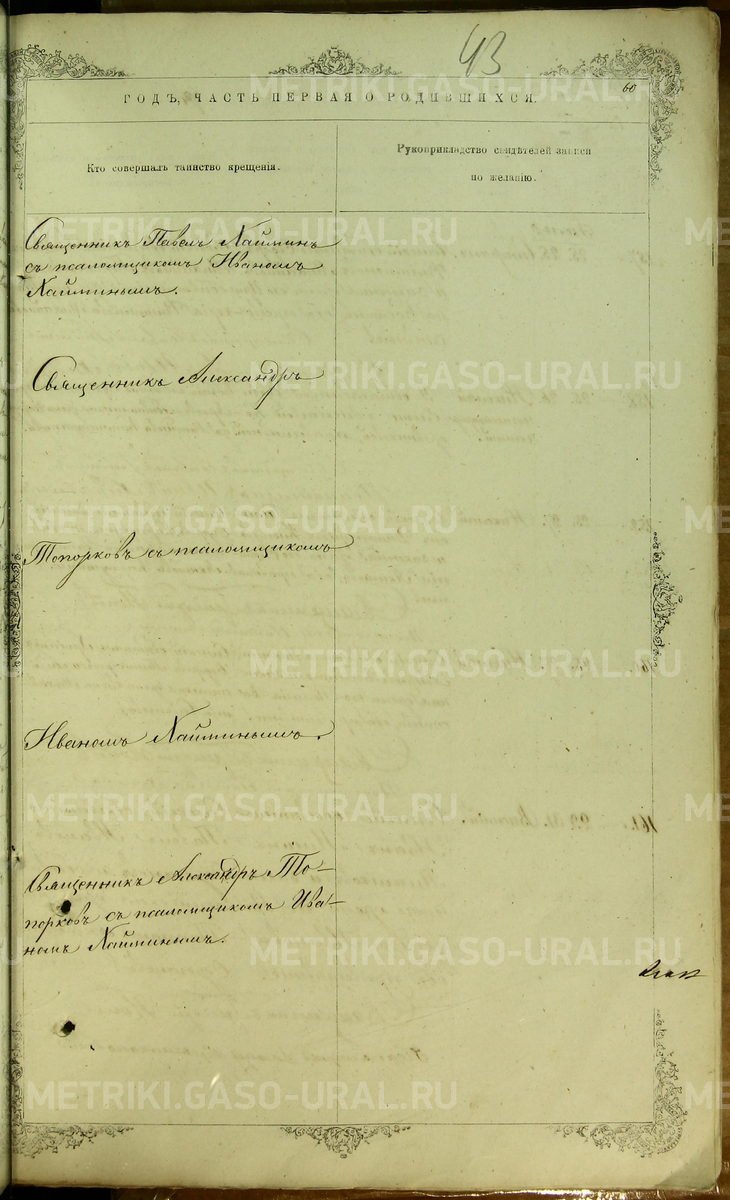 43
60
ГОДЪ, ЧАСТЬ ПЕРВАЯ О РОДИВШИХСЯ.
Кто совершалъ таинство крещенія.
Рукоприкладство свидѣтелей записи
по желанію.
Священникъ Павелъ Хайминъ
съ псаломщикомъ Иваномъ
Хайминымъ.
Священникъ Александръ
Топорковъ съ псаломщикомъ
Иваномъ Хайминымъ.
Священникъ Александръ То-
порковъ съ псаломщикомъ Ива-
номъ Хайминымъ.
METRIKI.GASO-URAL.RU